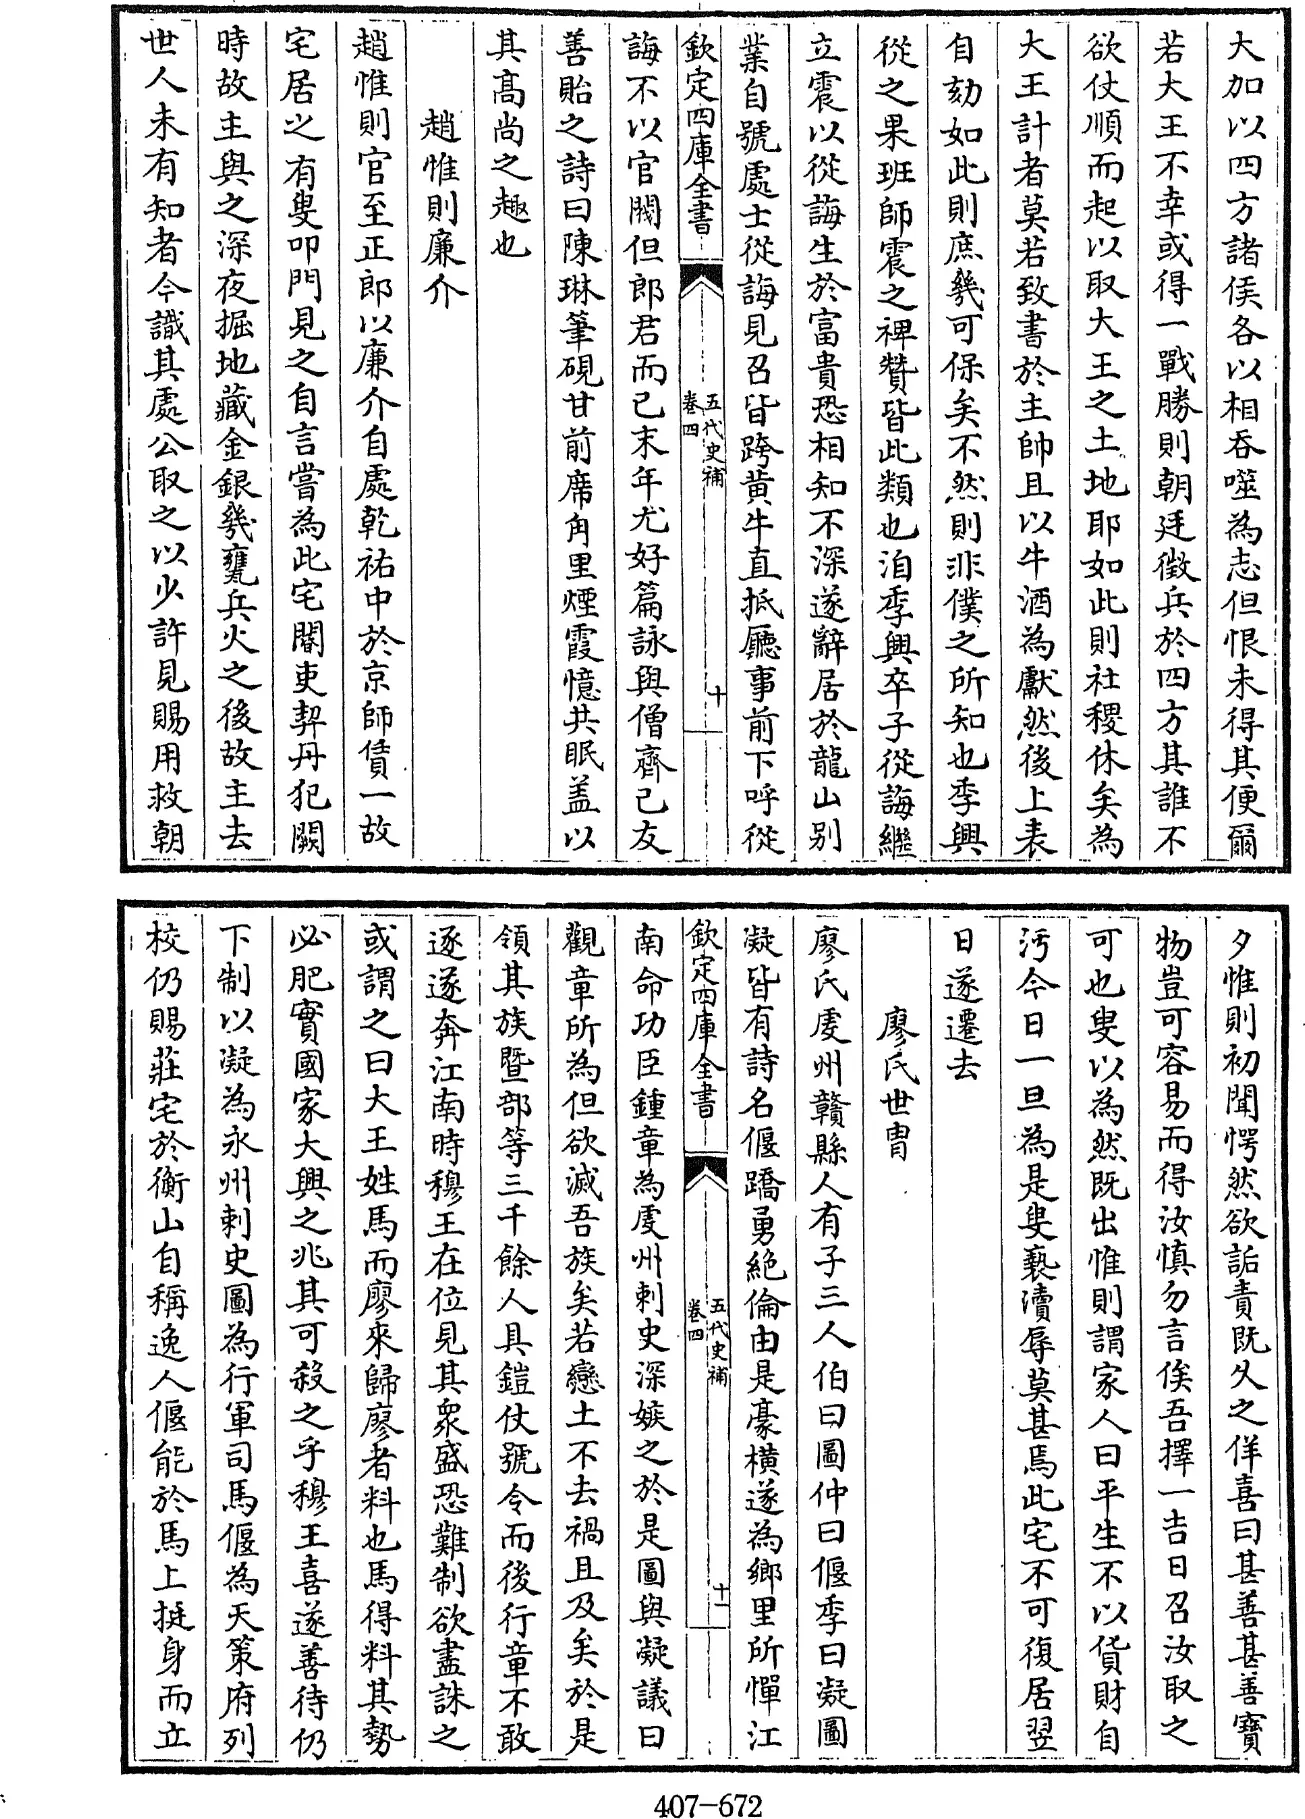 大加以四方諸侯各以相吞噬為志但恨未得其便爾
若大王不幸或得一戰勝則朝廷徵兵於四方其誰不
欲仗順而起以取大王之土地耶如此則社稷休矣為
大王計者莫若致書於主帥且以牛酒為獻然後上表
自劾如此則庶幾可保矣不然則非僕之所知也季興
從之果班師震之裨贊皆此類也洎季興卒子從誨繼
立震以從誨生於富貴恐相知不深遂辭居於龍山别
業自號處士從誨見召皆跨黄牛直抵廳事前下呼從
欽定四庫全書
五代史補
卷四
十
誨不以官閥但郎君而已末年尤好篇詠與僧齊已友
善貽之詩曰陳琳筆硯甘前席角里煙霞憶共眠盖以
其高尚之趣也
趙惟則廉介
趙惟則官至正郎以廉介自處乾祐中於京師賃一故
宅居之有叟叩門見之自言嘗為此宅閽吏契丹犯闕
時故主與之深夜掘地藏金銀幾甕兵火之後故主去
世人未有知者今識其處公取之以少許見賜用救朝
夕惟則初聞愕然欲詬責既久之佯喜曰甚善甚善寶
物豈可容易而得汝慎勿言俟吾擇一吉日召汝取之
可也叟以為然既出惟則謂家人曰平生不以貨財自
汚今日一旦為是叟褻瀆辱莫甚焉此宅不可復居翌
日遂遷去
廖氏世胄
廖氏虔州贛縣人有子三人伯曰圖仲曰偃季曰凝圖
凝皆有詩名偃蹻勇絶倫由是豪横遂為鄉里所憚江
欽定四庫全書
五代史補
卷四
十一
南命功臣鍾章為虔州刺史深嫉之於是圖與凝議曰
觀章所為但欲滅吾族矣若戀土不去禍且及矣於是
領其族暨部等三千餘人具鎧仗號令而後行章不敢
逐遂奔江南時穆王在位見其衆盛恐難制欲盡誅之
或謂之曰大王姓馬而廖來歸廖者料也馬得料其勢
必肥實國家大興之兆其可殺之乎穆王喜遂善待仍
下制以凝為永州刺史圖為行軍司馬偃為天策府列
校仍賜莊宅於衡山自稱逸人偃能於馬上挺身而立
407-672